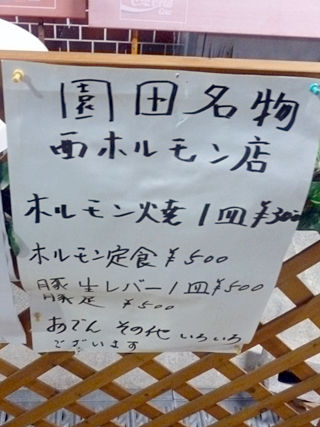 園田名物
西ホルモン店
ホルモン焼1皿¥300
ホルモン定食¥500
豚生レバー1皿¥500
豚足 ¥500
おでん その他 いろいろ
ございます